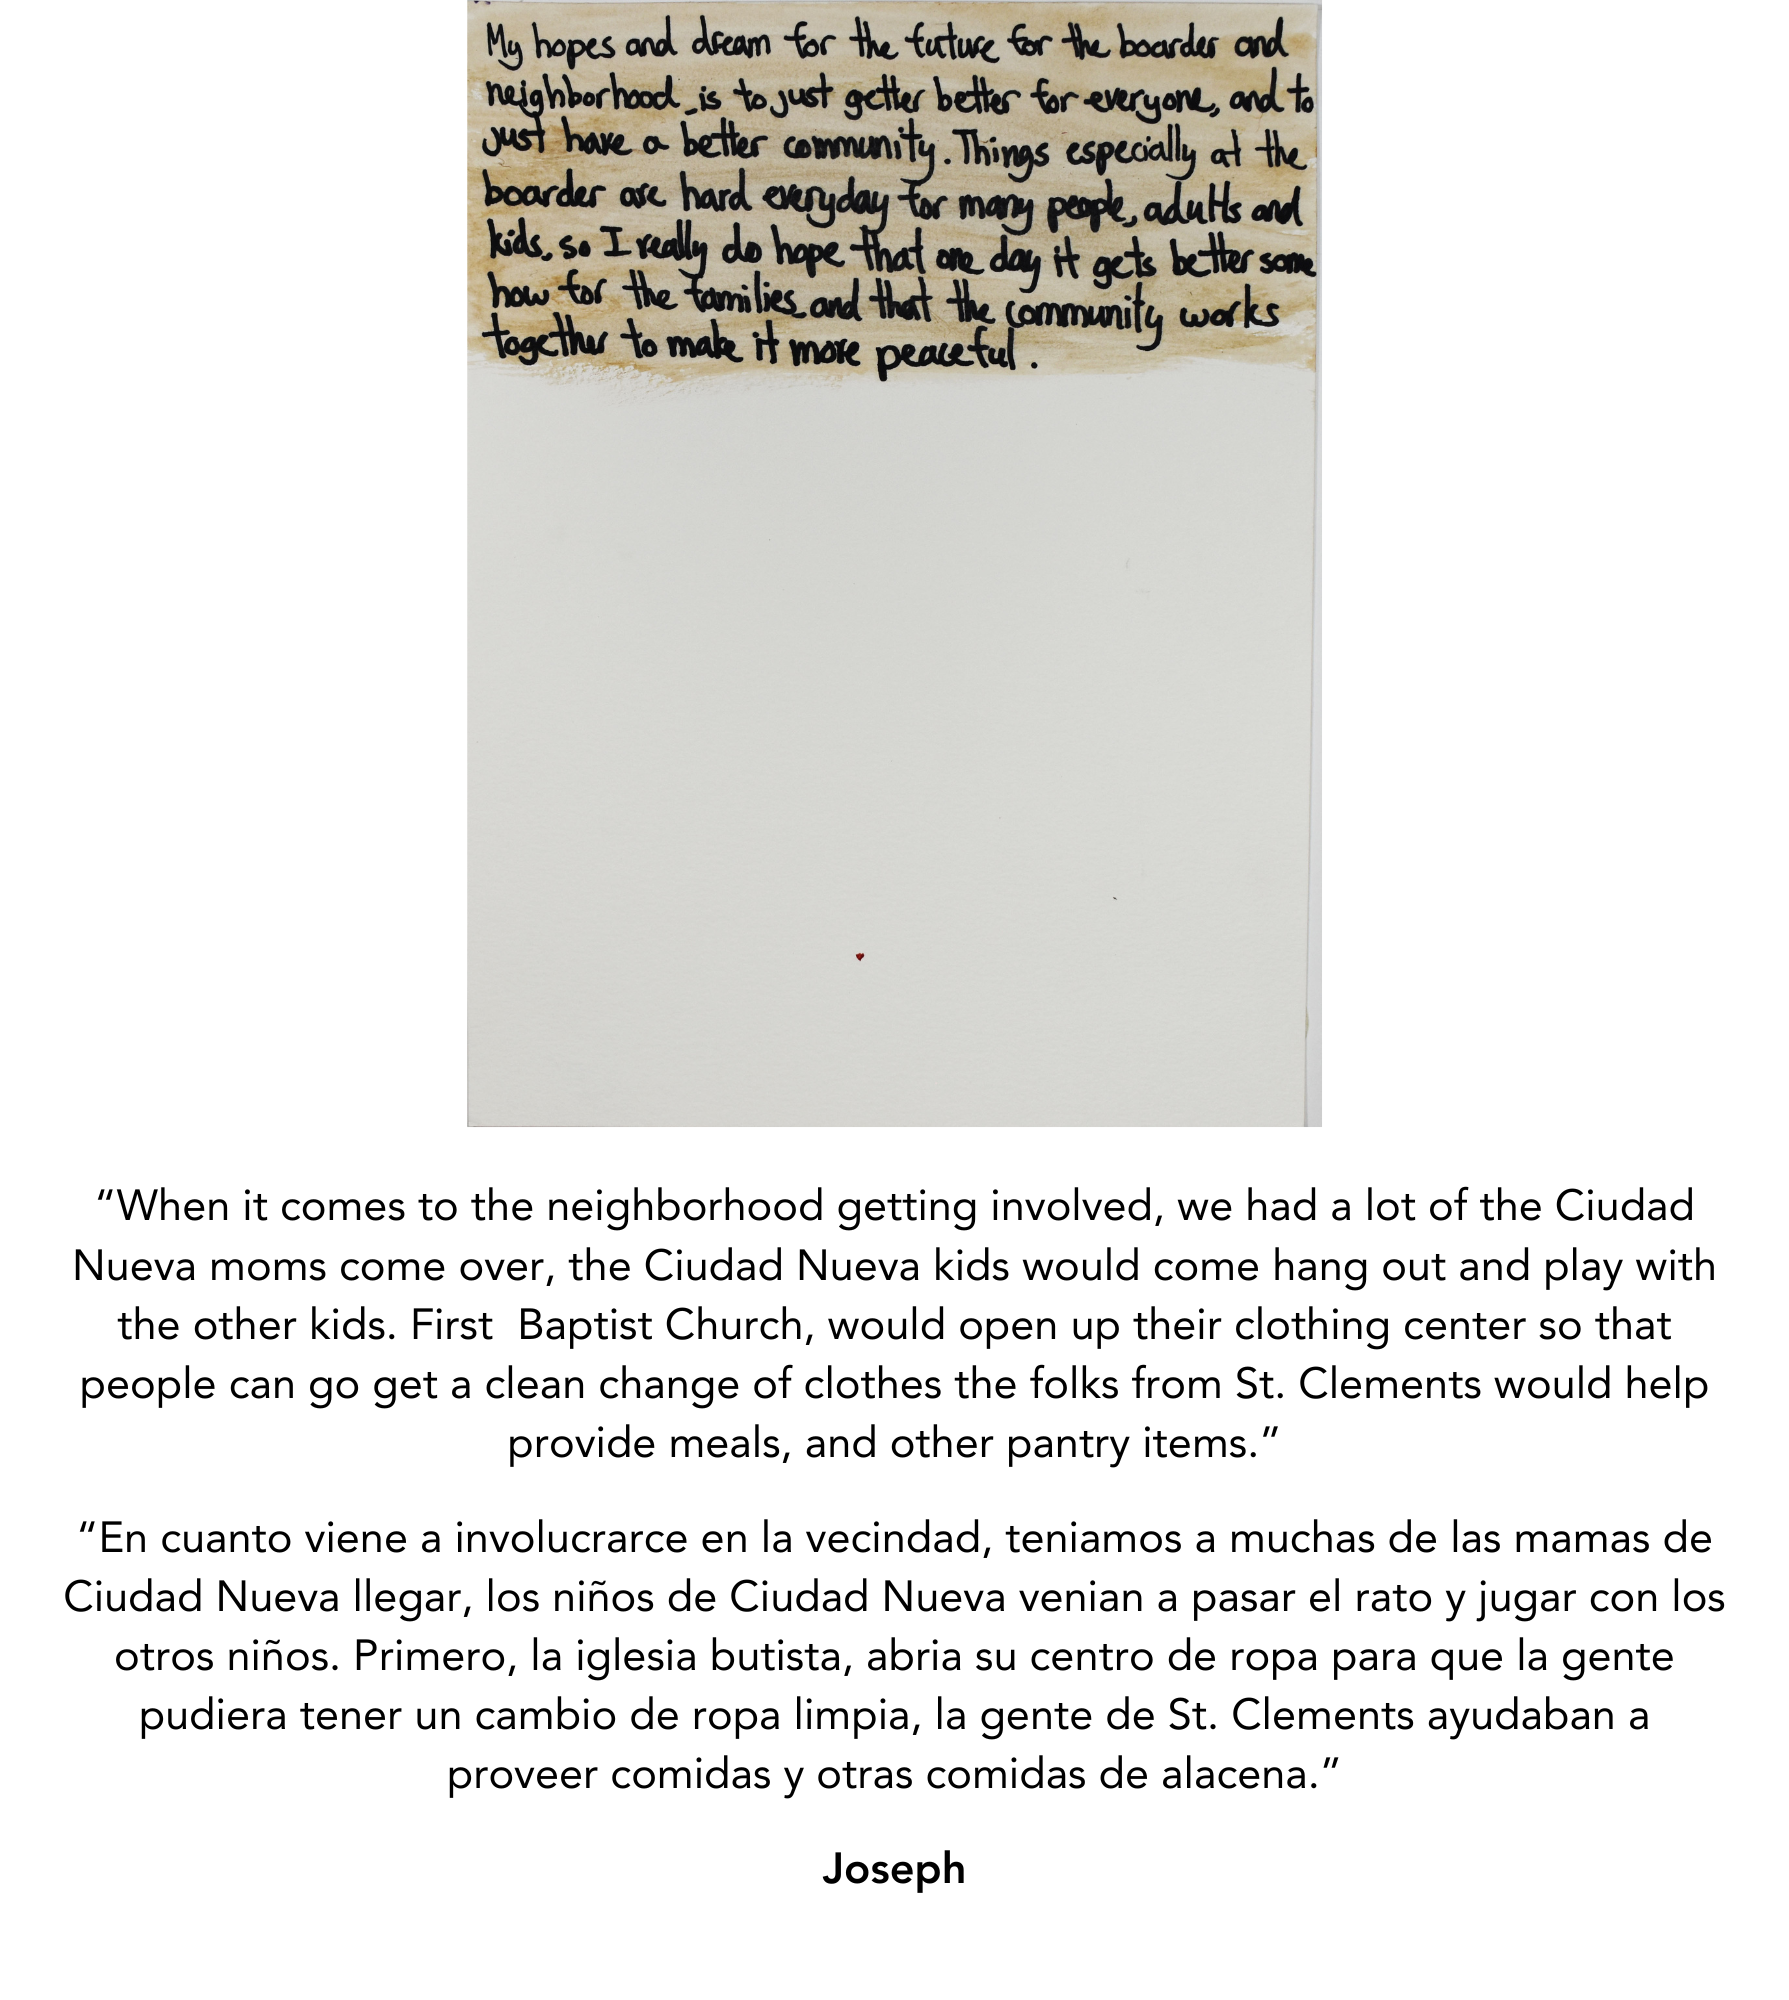 My hopes and dream for the future for the boarder and
neighborhood is to just getter better for everyone, and to
just have a better community. Things especially at the
boarder are hard everyday for many people, adults and
kids, so I really do hope that one day it gets better some
how for the families and that the community works
together to make it more peaceful.
“When it comes to the neighborhood getting involved, we had a lot of the Ciudad
Nueva moms come over, the Ciudad Nueva kids would come hang out and play with
the other kids. First  Baptist Church, would open up their clothing center so that
people can go get a clean change of clothes the folks from St. Clements would help
provide meals, and other pantry items.”
“En cuanto viene a involucrarce en la vecindad, teniamos a muchas de las mamas de
Ciudad Nueva llegar, los niños de Ciudad Nueva venian a pasar el rato y jugar con los
otros niños. Primero, la iglesia butista, abria su centro de ropa para que la gente
pudiera tener un cambio de ropa limpia, la gente de St. Clements ayudaban a
proveer comidas y otras comidas de alacena.”
Joseph